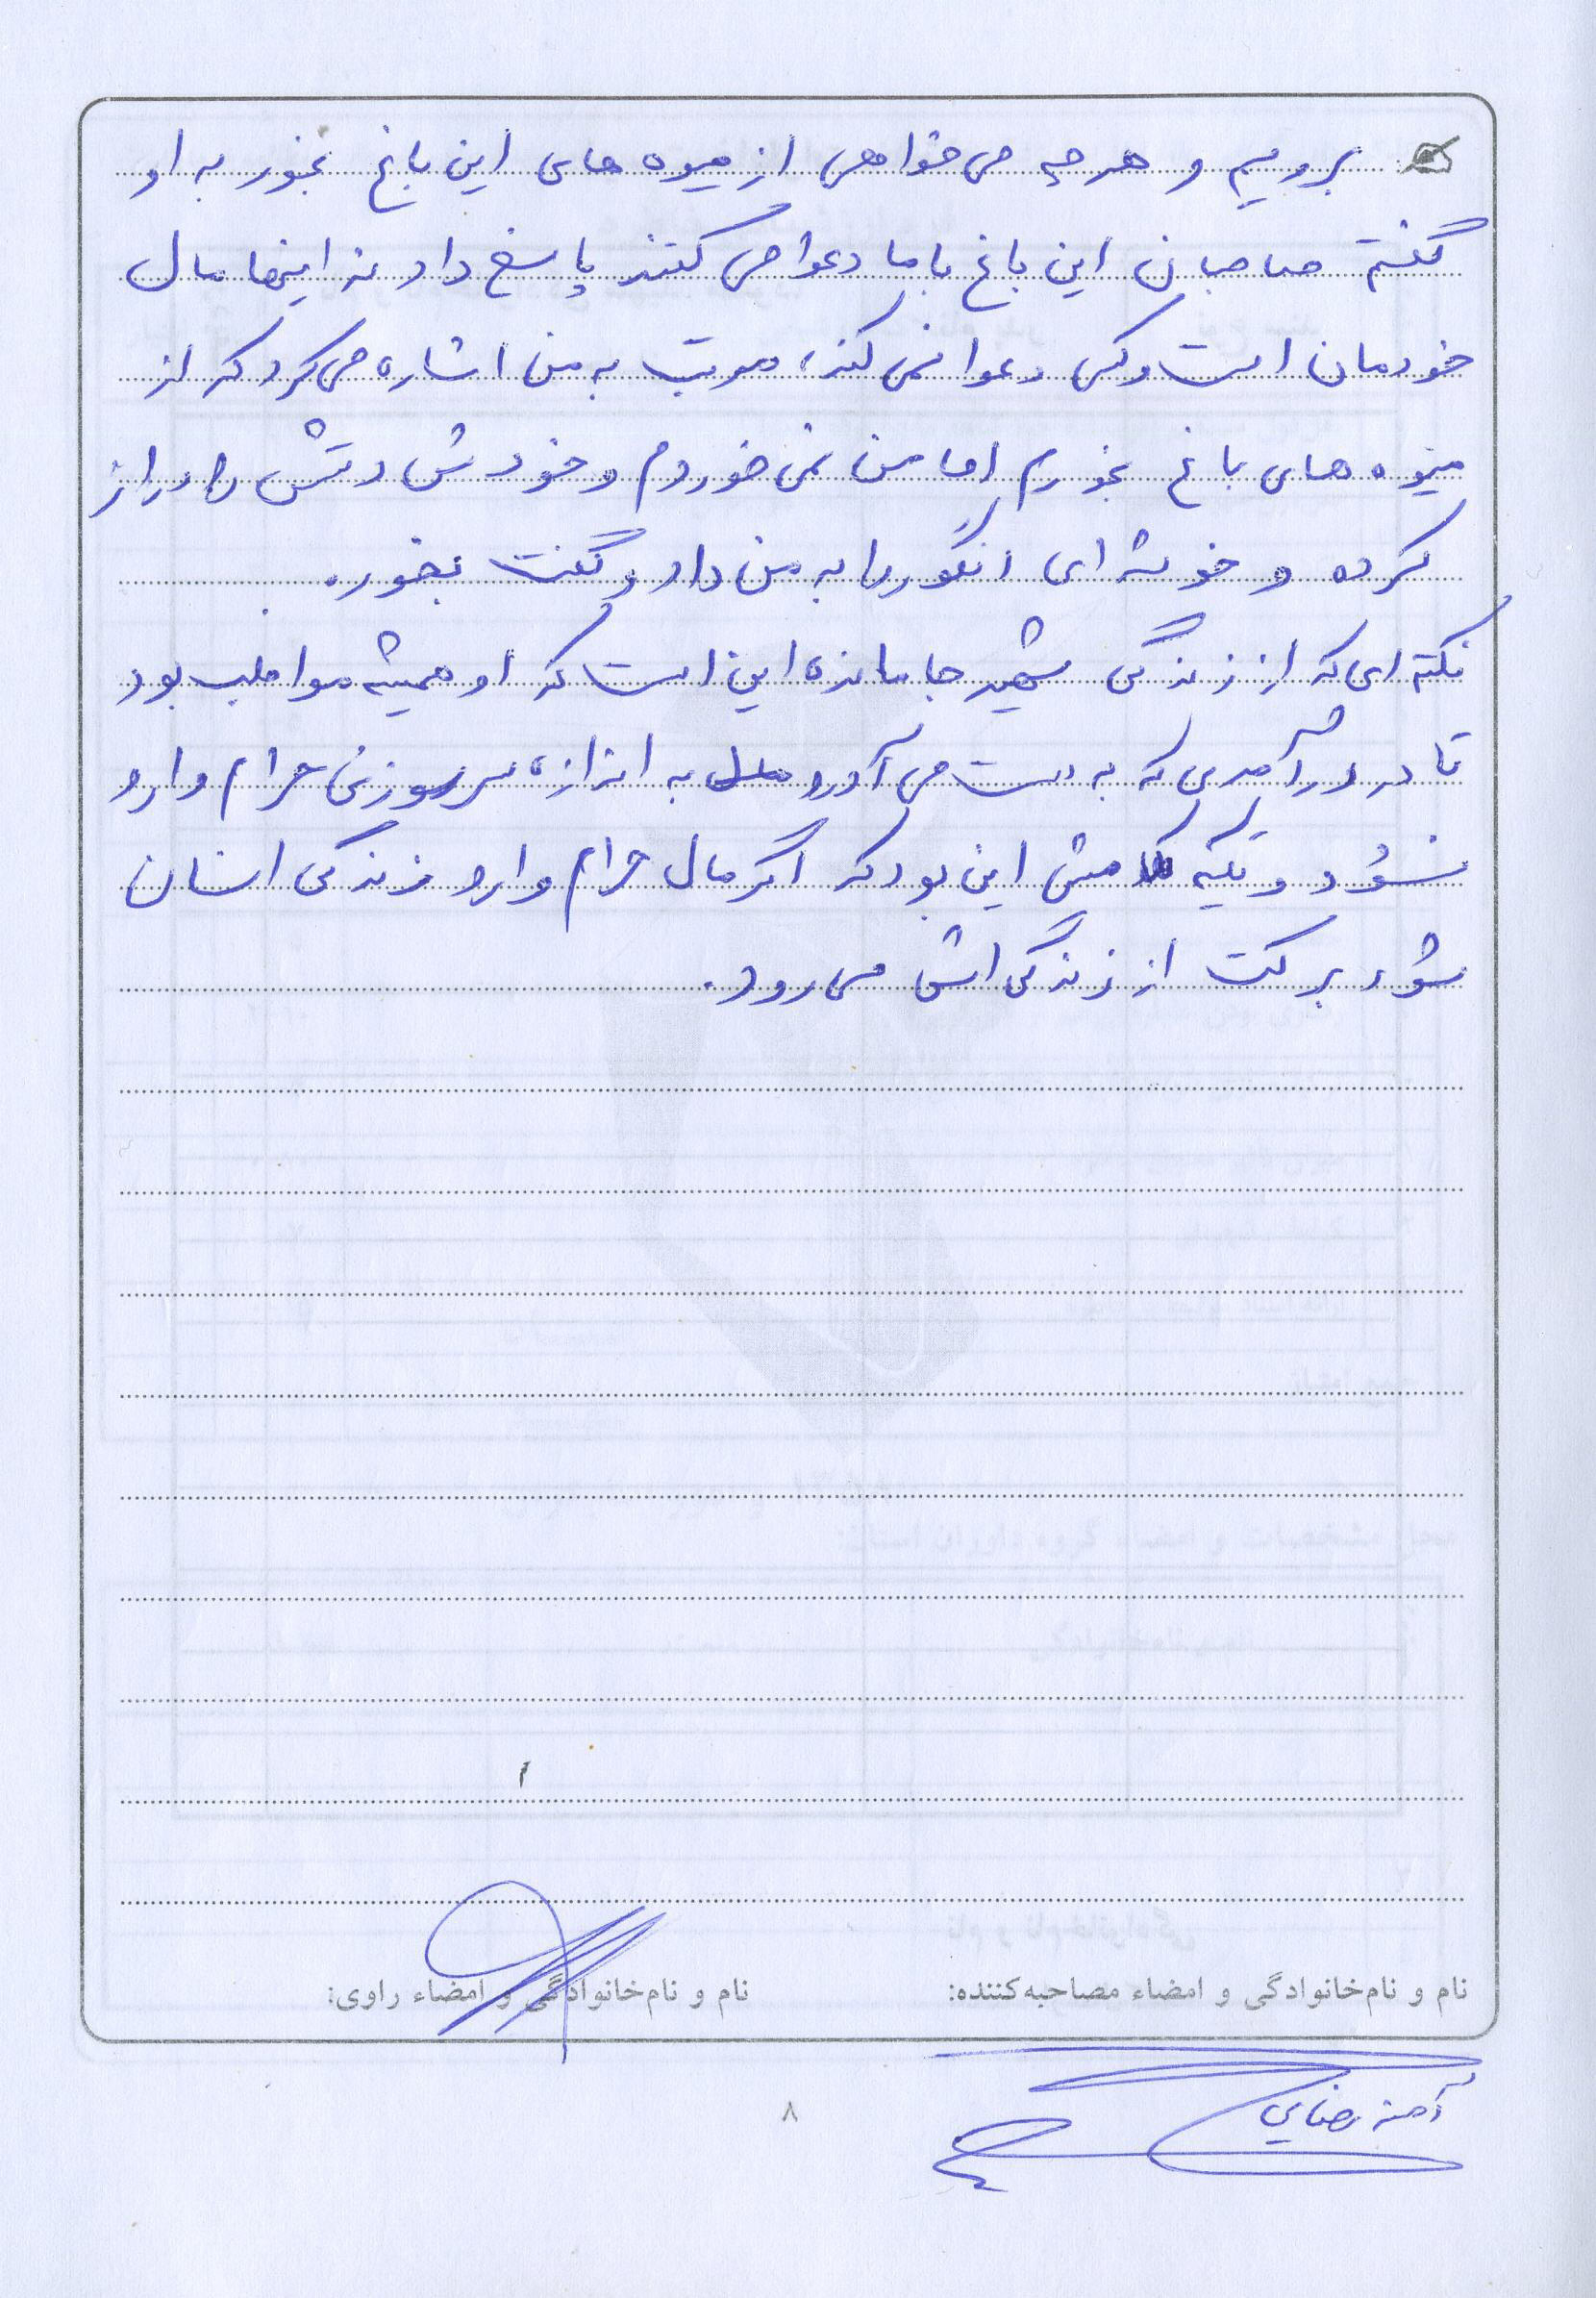 برویم و هر چه می خواهی از میوه های این باغ بخور به او
گفتم صاحبان این باغ با ما دعوا می کنند پاسخ داد نه اینها مال
خودمان است و کسی دعوا نمی کند، مرتب به من اشاره می کرد که از
میوه های باغ بخورم اما من نمی خوردم و خودش دستش را دراز
کرده و خوشه ای انگور را به من داد و گفت بخور.
نکته ای که از زندگی شهید جا مانده این است که او همیشه مواظب بود
تا در درآمدی که به دست می آورد به اندازه سر سوزنی حرام وارد
نشود و تکیه کلامش این بود که اگر مال حرام وارد زندگی انسان
شود برکت از زندگی اش می رود.
نام و نام‌خانوادگی و امضاء مصاحبه‌کننده:
نام و نام‌خانوادگی و امضاء راوی:
آمنه رضایی
۸